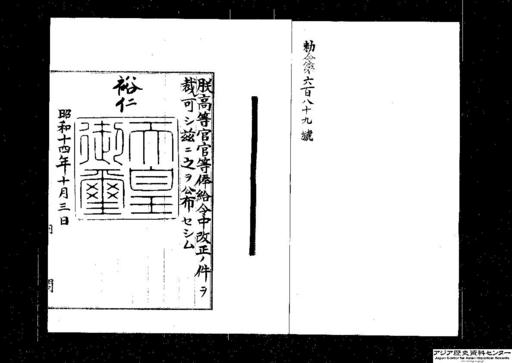 勅令第六百八十九號
朕高等官官等俸給令中改正ノ件ヲ
裁可シ茲ニ之ヲ公布セシム
裕仁
天皇
御璽
昭和十四年十月三日
内閣
アジア歴史資料センター
Japan Center for Asian Historical Records